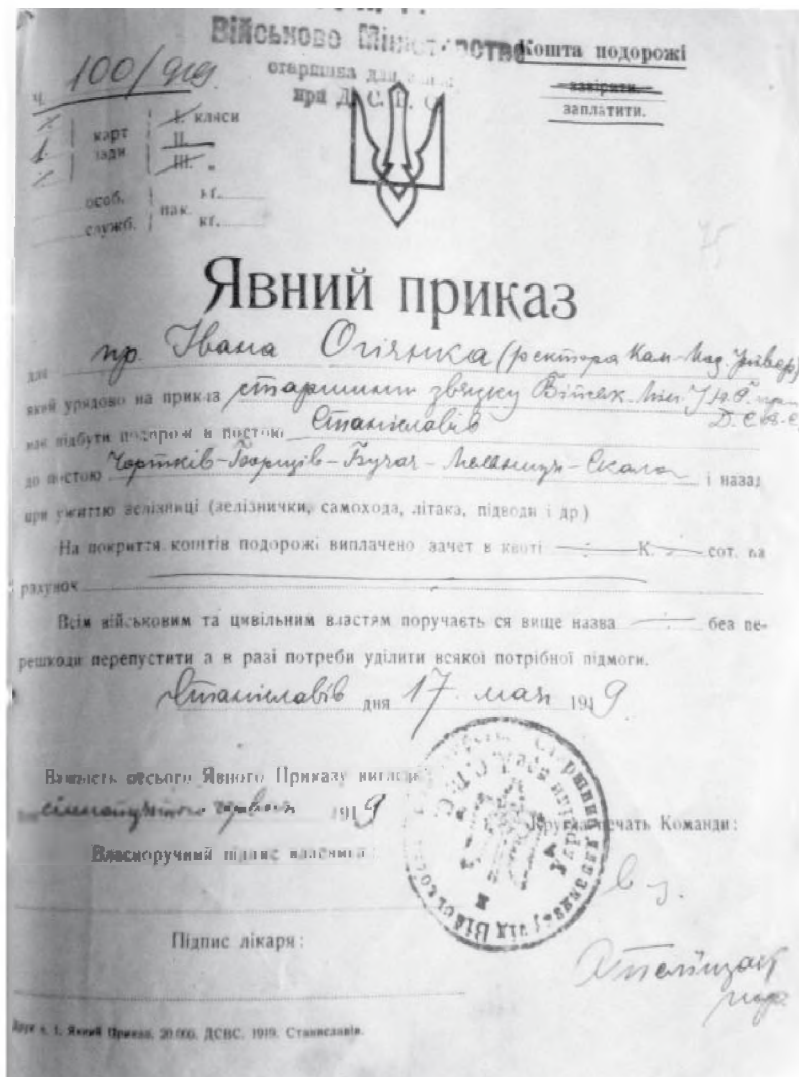 Військове Міністерство
старшина для
при Д. С. В. С.
Кошта подорожі
завірити.
заплатити.
ч. 100/919
карт
їзди
I. кляси
II. „
III. „
особ.
служб.
пак.
кг.
кг.
75
Явний приказ
для пр. Івана Огієнка (ректора Кам-Под. Універ)
який урядово на приказ старшини звязку Війск. Мін. У.Н.Р. при
Д.С.В.С.
має відбути подорож з постою Станіславів
до постою Чортків-Борщів-Бучач-Мельниця-Скала і назад
при ужиттю зелізниці (зелізнички, самохода, літака, підводи і др.)
На покриття коштів подорожі виплачено зачет в квоті К. сот. на
рахунок
Всім військовим та цивільним властям поручаєть ся вище назва без пе-
решкоди перепустити а в разі потреби уділити всякої потрібної підмоги.
Станіславів дня 17. мая 1919
Важність отсього Явного Приказу вигасає
сімнацятого червня 1919
Кругла печать Команди:
Власноручний підпис власника:
в з.
Підпис лікаря:
Друк ч. 1. Явний Приказ. 20.000. ДСВС. 1919. Станиславів.